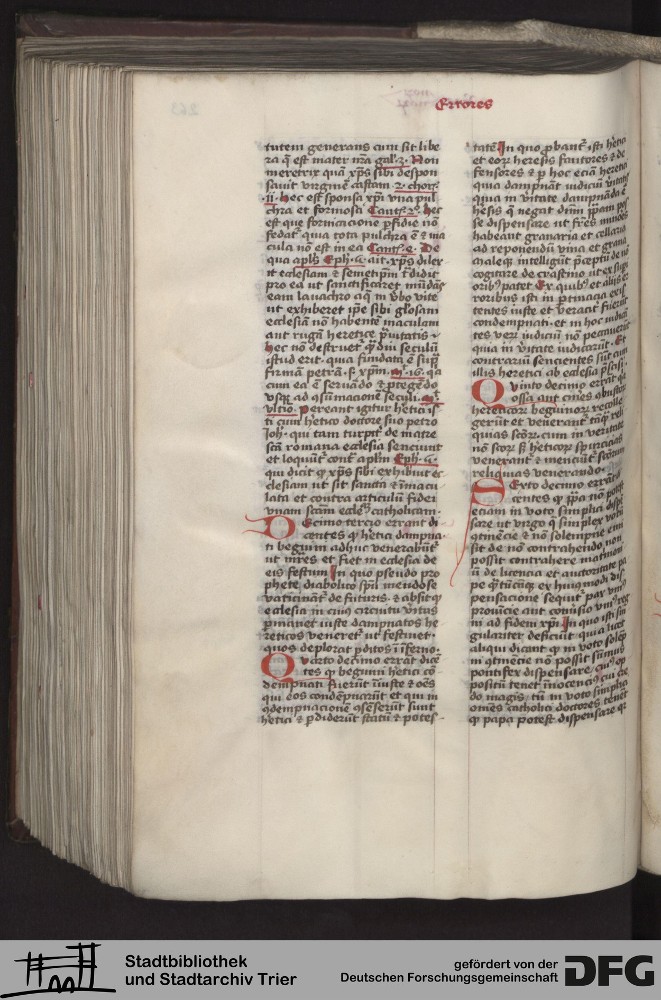 Errores
tutem generans cum sit libe
ra q̄ est mater n̄ra gal. Non
meretrix quā xp̄s sibi despon
sauit virginē castam. 2. chor.
.11. Hec est sponsa xp̄i vna pul
chra et formosa Cant. hec
est que fornicacione perfidie nō
fedat quia tota pulchra ē & ma
cula nō est in ea Cant. De
qua apl̄s Eph. ait xp̄s dilex
it ecclesiam & semetip̄m tradidit
pro ea ut sanctificaret mūdās
eam lauachro aq̄ in vbo vite
ut exhiberet ip̄e sibi glosam
ecclesiā nō habentē maculam
aut rugā heretice prauitatis
hec nō destruet q̄diu seculū
istud erit. quia fundata ē sup
firmā petrā. s. xpm. 16. qa
cum ea ē seruādo & ptegēdo
vsq ad cōsumacionē seculi.
vltio. pereant igitur hetici is
ti cum hetico doctore suo petro
Joh. qui tam turpit de matre
sc̄a romana ecclesia senciunt
et loquūt cont aplm Eph.
qui dicit q xp̄s sibi exhibuit ec
clesiam ut sit sancta & inmacu
lata et contra articulū fidei
vnam sc̄tam eccles catholicam
Decimo tercio errant di
centes q hetici dampna
ti begini adhuc venerabūt
ut mr̄es et fiet in ecclesia de
eis festum In quo pseudo pro
phete diabolico sp̄u mendose
vaticināt de futuris. & absit q
ecclesia in cuius circuitu v̄itas
iuste dampnatos he
reticos veneret ut festinet
quos deplorat p̄ditos ī īferno.
Quarto decimo errāt dicē
tes q begini hetici cō
dempnati fuerūt iniuste & oēs
qui eos condēpnarūt et qui in
cōdempnacionē cōsēserūt sunt
hetici & p̄diderūt statū & potes
tatē In quo probant isti hetici
et eor heresis fautores & de
fensores & p hoc eciā heretici
quia dampnāt iudiciū v̄itatis
quia in v̄itate dampnāda ē
hesis q̄ negat dn̄m ip̄am pos
se dispensare ut fres minores
habeant granaria et cellaria
ad reponendū vina et grana
male intelligūt p̄ceptū de nō
cogitare de crastino ut ex supi
orib patet Ex quib et aliis er
roribus isti in p̄tinacia exis
tentes iuste et veracit fuerūt
condempnati. et in hoc iudicā
tes veri iudiciū nō peccauerūt
quia in v̄itate iudicarūt. Et
contrariū sencientes sūt cum
illis heretici ab ecclesia p̄scisi.
Quinto decimo errāt qr
ossa aut cines cōbustor
hereticor beginor recolle
gerūt et venerant tāq reli
quias scōr. cum in veritate
nō scōr s̄ heticor spurcicias
venerant & mencūt scōrum
reliquias venerando.
Sexto decimo errāt di
centes q p̄pa nō potest
eciam in voto simplici dispē
sare ut virgo q simplex votū
q̄tinēcie & nō solempne emi
sit de nō contrahendo non
possit contrahere matrimoni
ū de licencia et autoritate pa
pe q̄tūcūq ex huiusmodi dis
pensacione sequit pax vni
prouīcie aut cōuisio
ni ad fidem xp̄i. In quo isti sin
gularitet deficiūt quia licet
aliqui dicant q in voto solēp
ni q̄tinēcie nō possit sūmus
pontifex dispensare. cui op
positū tenet īnocencius cui cre
do magis tn̄ in voto simplici
omēs catholici doctores tenēt
q papa potest dispensare q
Stadtbibliothek
und Stadtarchiv Trier
gefördert von der
Deutschen Forschungsgemeinschaft
DFG